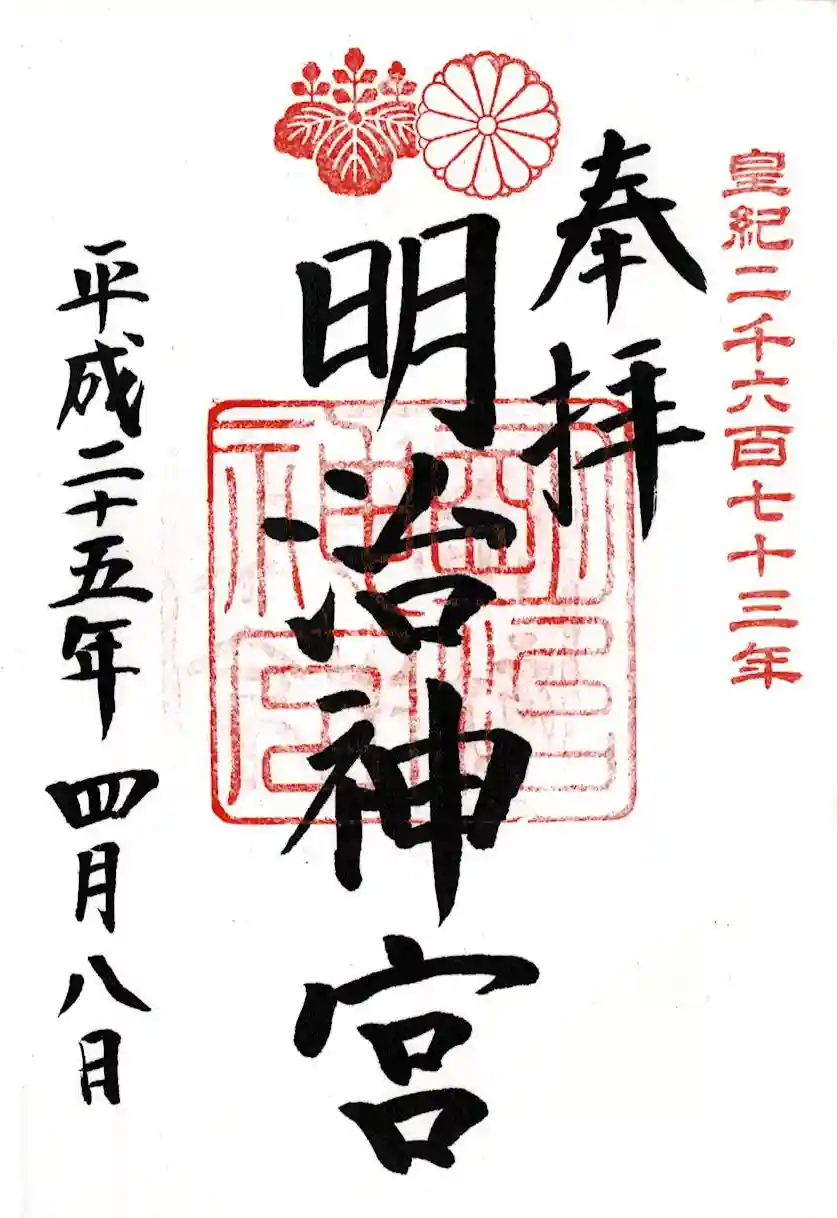 皇紀二千六百七十三年
奉拝
明治神宮
明治神宮
平成二十五年四月八日